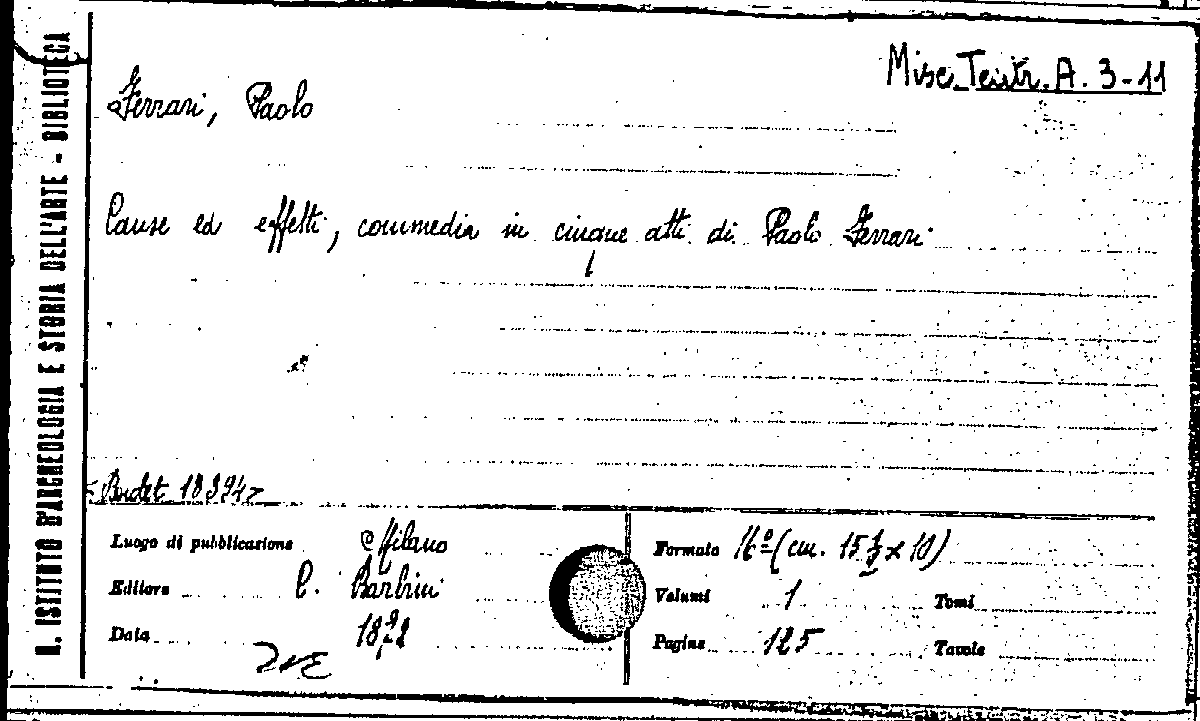 R. ISTITUTO D'ARCHEOLOGIA E STORIA DELL'ARTE - BIBLIOTECA
Misc. Teatr. A. 3-11
Ferrari, Paolo
Cause ed effetti, commedia in cinque atti di Paolo Ferrari
Luogo di pubblicazione Milano
Editore C. Barbini
Data 1872
Formato 16º (cm. 15 ½ x 10)
Volumi 1 Tomi
Pagine 125 Tavole